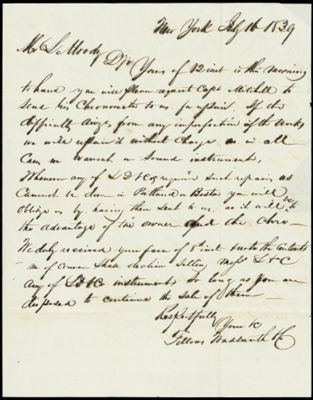 New York July 16 1839
Mr L Moody
D Sir Yours of 12 inst is this morning
to hand you will please request Capt Mitchell to
send his Chronometer to us for repair. If the
difficulty arises from any imperfection of the Works
we will repair it without Charge as in all
Cases we warrant a Sound instrument,
Whenever any of L & Co require such repairs as
Cannot be done in Portland or Boston you will
Oblige us by having them sent to us, as it will be to
the advantage of the owner and the Chro—
We duly received your favor of 8 inst note the Contents
of Course Shall decline Selling Messrs L & C
Any of instruments So long as you are
disposed to continue the Sale of them—
Respectfully
Your
Wadsworth